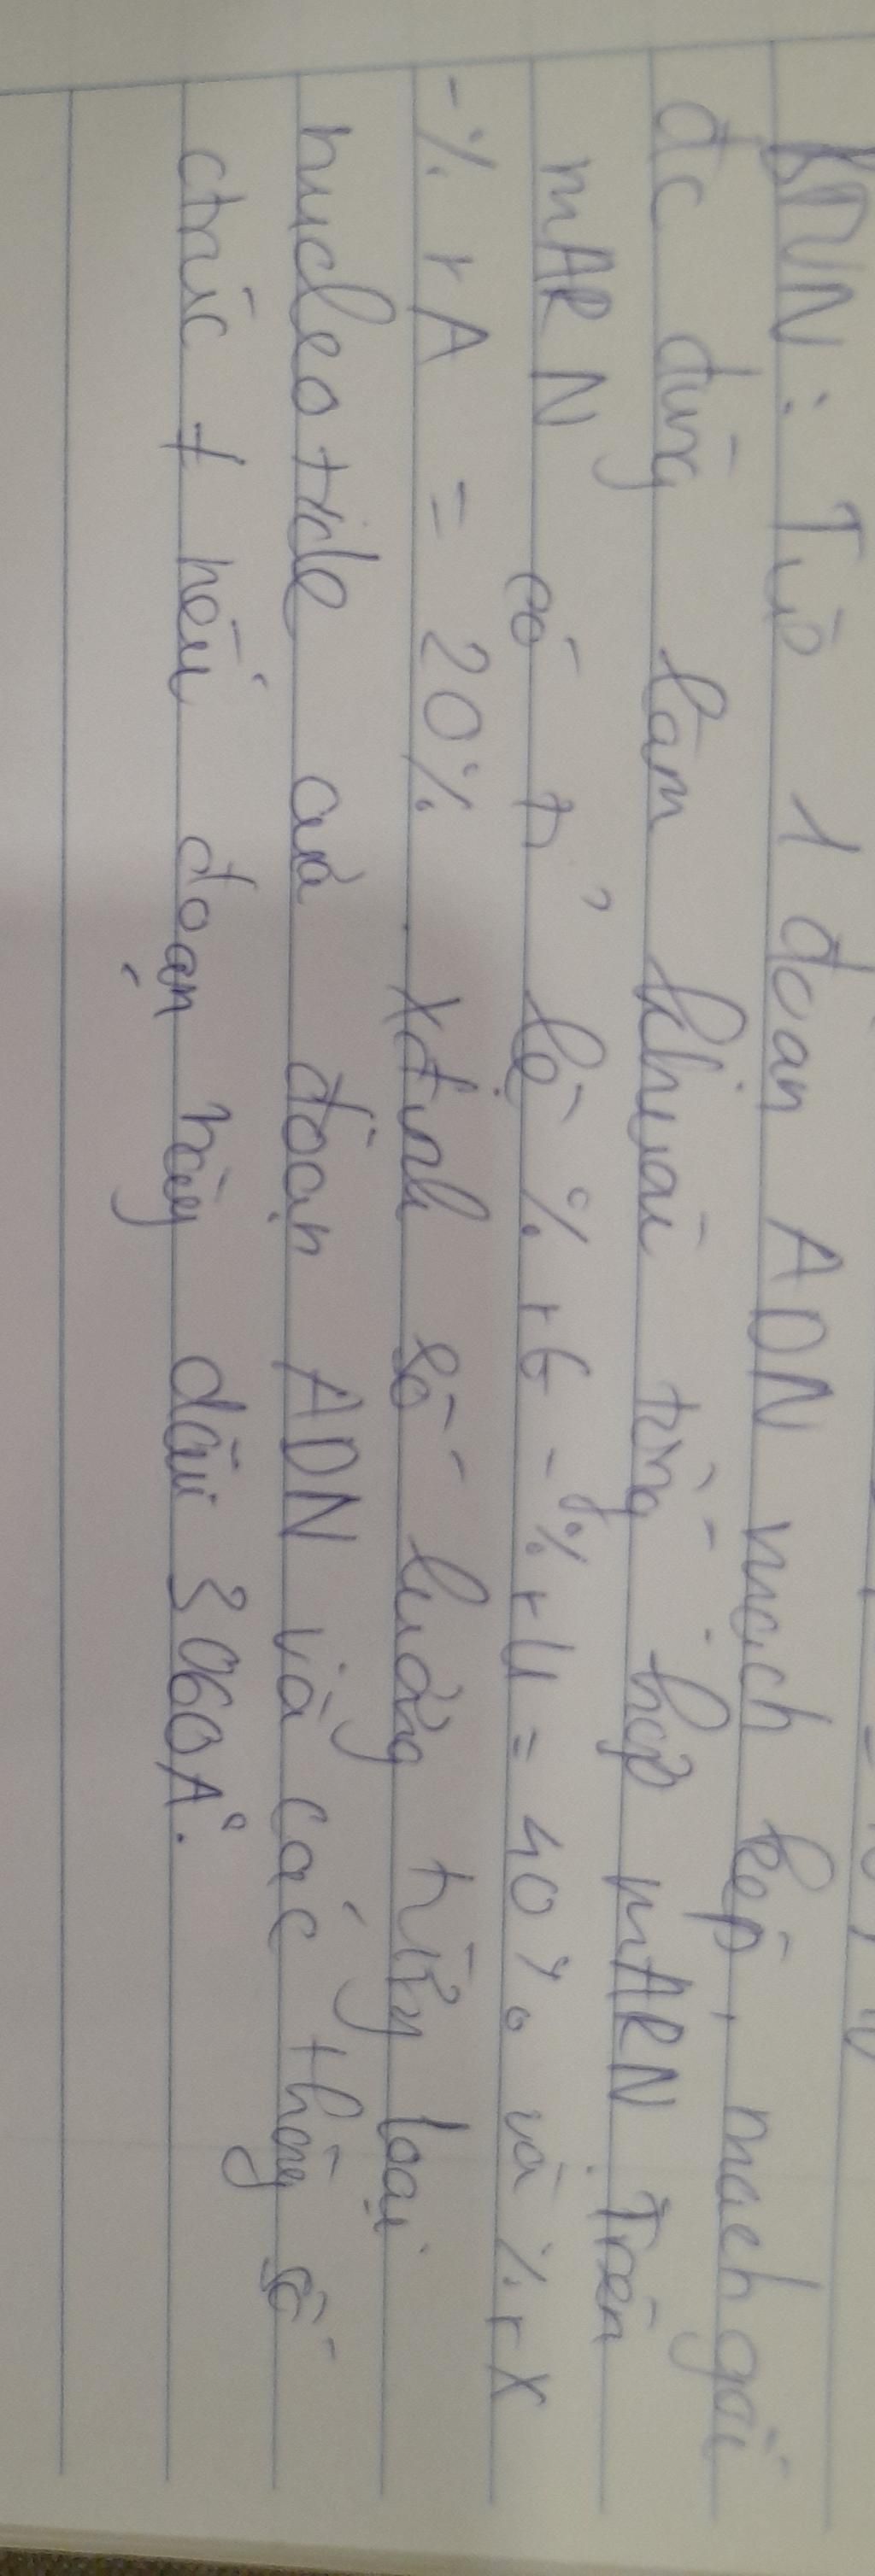 BTVN: Từ 1 đoạn ADN mạch kép, mạch gốc
đc dùng làm khuôn tổng hợp mARN. Trên
mARN có tỉ lệ % rG - % rU = 40% và % rX
- % rA = 20%. Xđịnh số lượng từng loại
nucleotide của đoạn ADN và các thông số
ctrúc ≠ nếu đoạn này dài 3060A°.